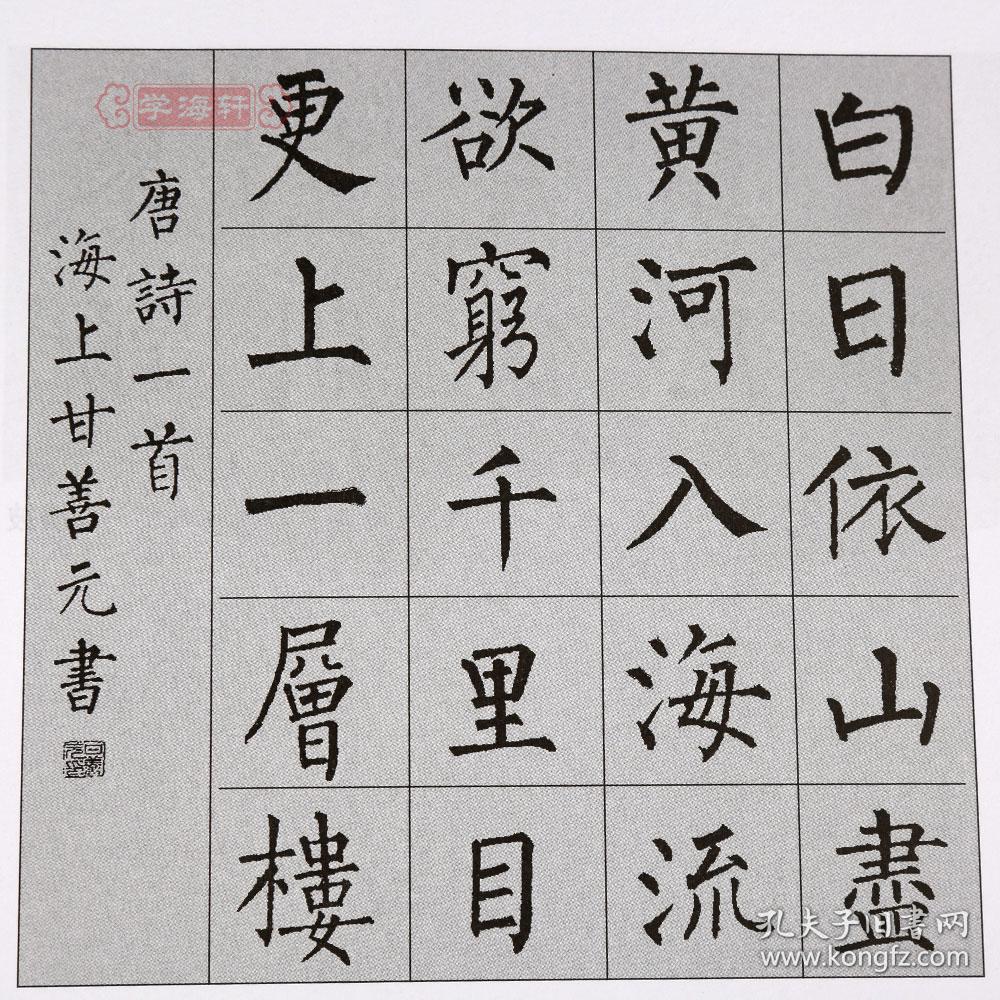 白日依山盡
黃河入海流
欲窮千里目
更上一層樓
唐詩一首
海上甘善元書
学海轩
孔夫子旧書网
www.kongfz.com